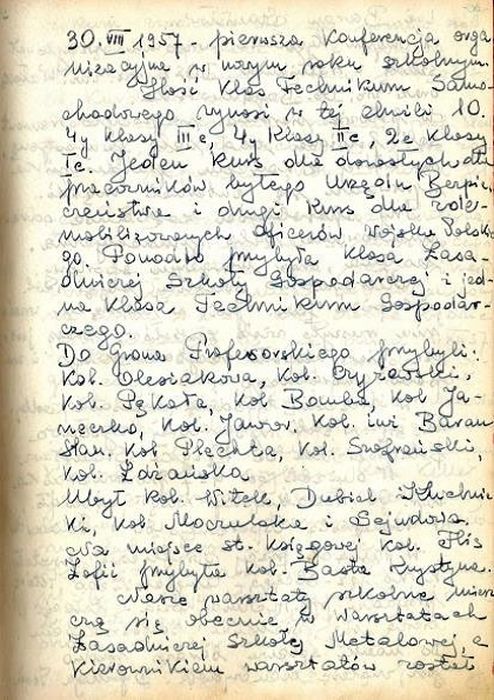 30. VIII 1957 - pierwsza Konferencja orga
nizacyjna w nowym roku szkolnym.
Ilość Klas Technikum Samo-
chodowego wynosi w tej chwili 10.
4y klasy III c, 4y Klasy II c, 2e Klasy
I c. Jeden kurs dla dorosłych dla
pracowników byłego Urzędu Bezpie-
czeństwa i drugi Kurs dla zde-
mobilizowanych oficerów Wojska Polskie
go. Ponadto przybyła Klasa Zasa-
dniczej Szkoły Gospodarczej i jed-
na Klasa Technikum Gospodar-
czego.
Do Grona Profesorskiego przybyli:
Kol. Olesiakowa, Kol.
Kol. Pękala, Kol Bomba, Kol Ja-
neczko, Kol. Jawor, Kol. inż Baran
Stan. Kol Plechta, Kol. Szafrański,
Kol. Łozańska
Ubył Kol. Witek, Dubiel i Kluchnic
ki, Kol Moczulska i Sejudowa.
Na miejsce st. Księgowej Kol. Flis
Zofii przybyła Kol. Basta Krystyna.
Nasze warsztaty szkolne miesz
czą się obecnie w Warsztatach
Zasadniczej Szkoły Metalowej, a
Kierownikiem warsztatów został